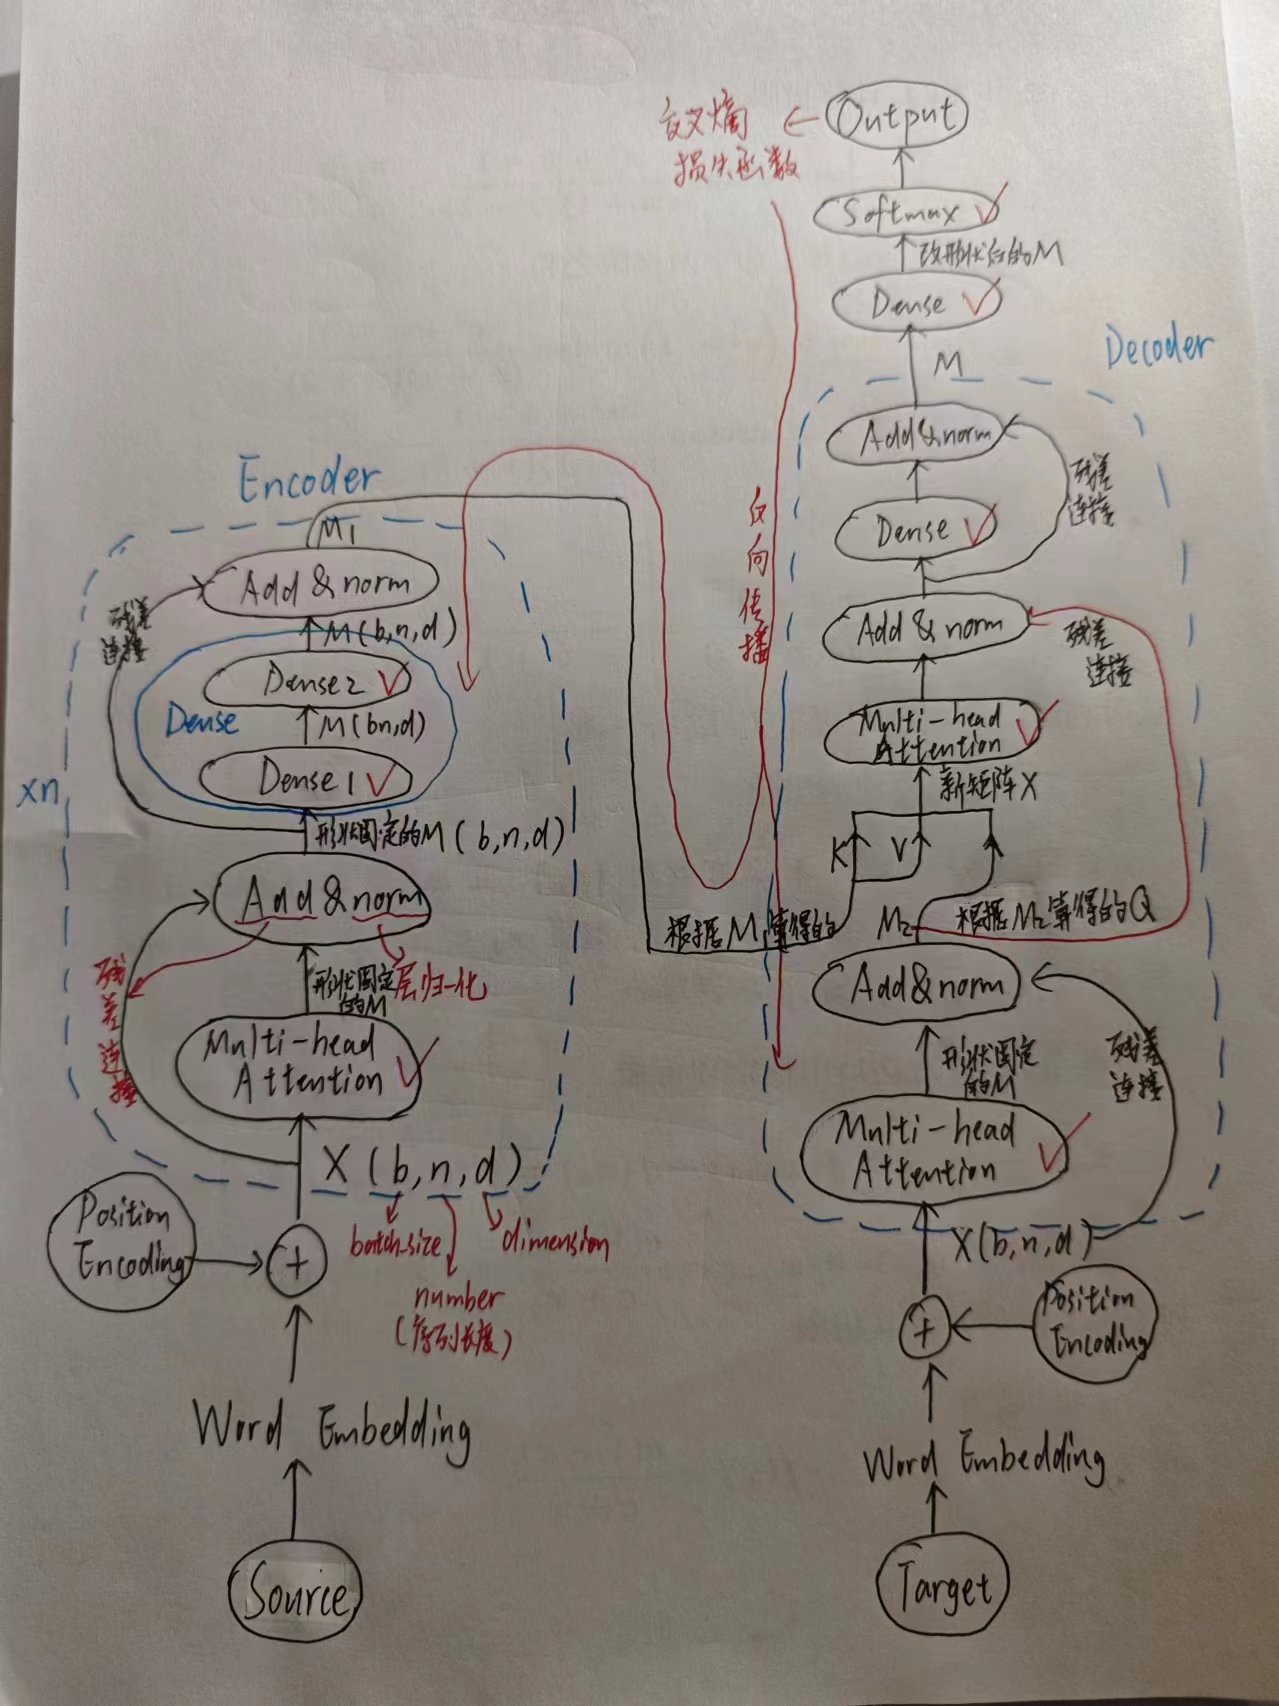 Output
交叉熵
损失函数
Softmax
改形状后的M
Dense
Decoder
M
Add&norm
残差
连接
Dense
Add & norm
残差
连接
Multi-head
Attention
新矩阵X
K
V
反向传播
根据M1算得的
M2
根据M2算得的Q
Add&norm
形状固定
的M
残差
连接
Multi-head
Attention
X(b,n,d)
+
Position
Encoding
Word Embedding
Target
Encoder
M1
Add & norm
残差
连接
M(b,n,d)
Dense2
Dense
M(bn,d)
Dense1
xn
形状固定的M(b,n,d)
Add & norm
残差连接
形状固定
的M
层归一化
Multi-head
Attention
X(b,n,d)
batch-size
dimension
number
(序列长度)
Position
Encoding
+
Word Embedding
Source